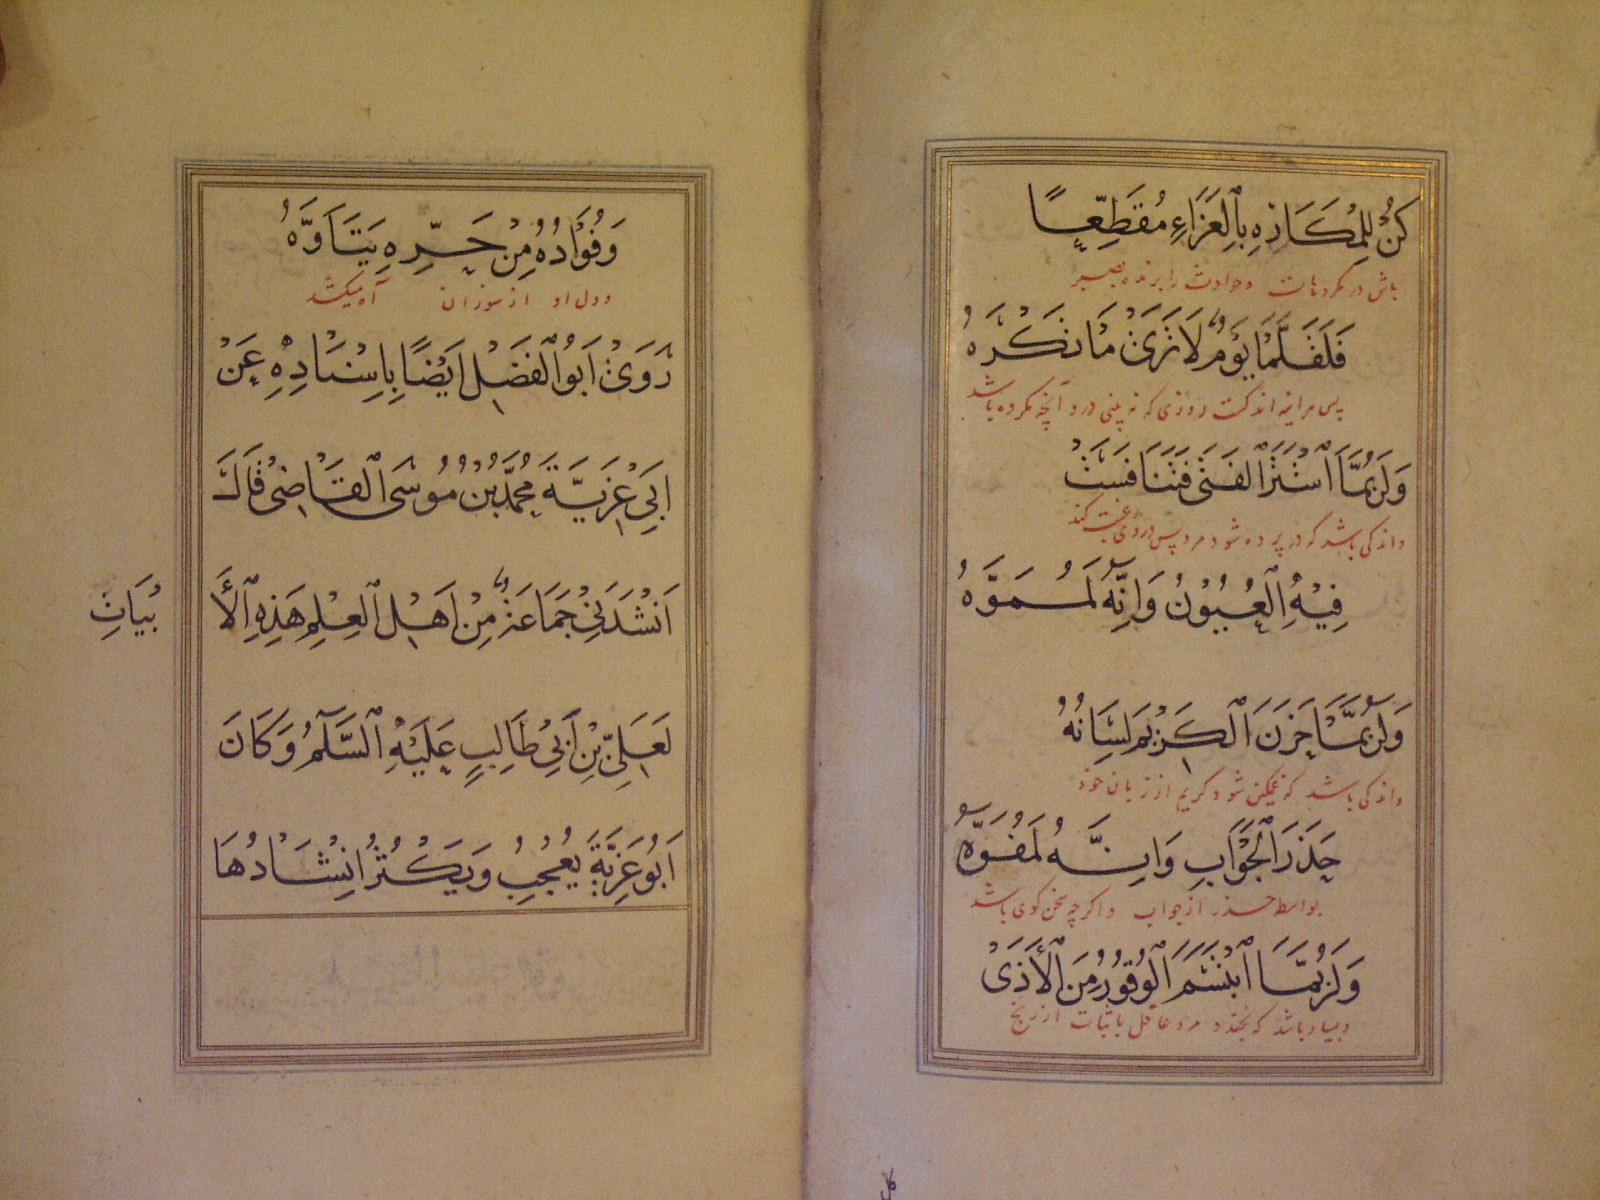 كُنْ لِلْمَكَارِهِ بِالْعَزَاءِ مُقَطِّعًا
باش در مکروهات و حوادث را برنده بصبر
فَلَقَلَّمَا يَوْمٌ لَا تَرَىٰ مَا تَكْرَهُ
پس هراینه اندکست روزی که نه بینی درو آنچه مکروه باشد
وَلَرُبَّمَا اسْتَتَرَ الْفَتَى فَتَنَافَسَتْ
واندکی باشد که در پرده شود مرد پس درو رغبت کند
فِيْهِ الْعُيُوْنُ وَاِنَّهُ لَمُمَوَّهُ
وَلَرُبَّمَا خَزَنَ الْكَرِيْمُ لِسَانَهُ
واندکی باشد که غمکین شود کریم از زبان خود
حَذَرَ الْجَوَابِ وَاِنَّهُ لَمُفَوَّهُ
بواسطه حذر از جواب واکر چه سخن کوی باشد
وَلَرُبَّمَا ابْتَسَمَ الْوَقُوْرُ مِنَ الْأَذَىٰ
وبسیار باشد که بخندد مرد عاقل با ثبات از رنج
وَفُؤَادُهُ مِنْ حَرِّهِ يَتَاَوَّهُ
ودل او از سوزان آه میکشد
رَوَىٰ اَبُو الْفَضْلِ اَيْضًا بِاِسْنَادِهِ عَنْ
اَبِي عَزِيَّةَ مُحَمَّدِ بْنِ مُوسَى الْقَاضِيْ قَالَ
اَنْشَدَنِيْ جَمَاعَةٌ مِنْ اَهْلِ الْعِلْمِ هَذِهِ الْأَ بْيَاتِ
لِعَلِيِّ بْنِ أَبِيْ طَالِبٍ عَلَيْهِ السَّلَامُ وَكَانَ
اَبُو عَزِيَّةَ يُعْجِبُ وَيَكْثُرُ اِنْشَادُهَا